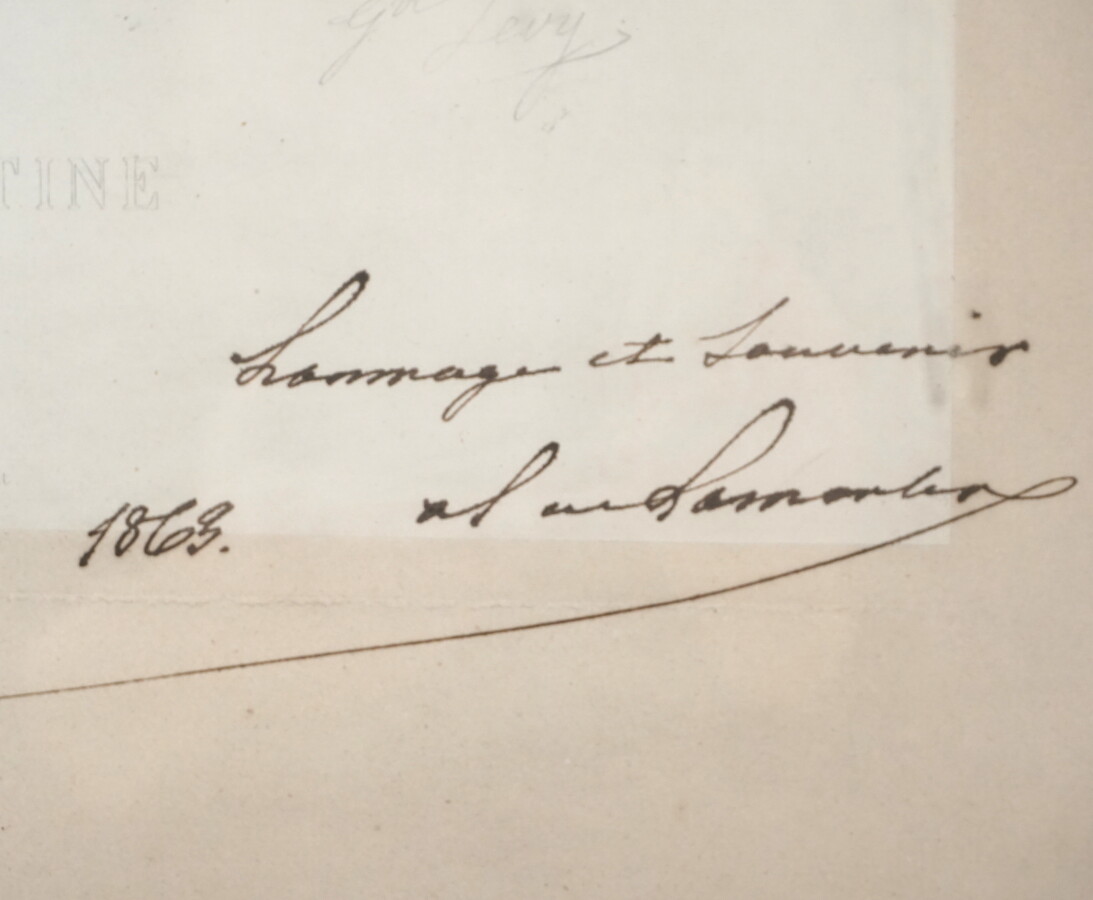 Gd Levy
TINE
hommage et souvenir
1863. al de Lamartine